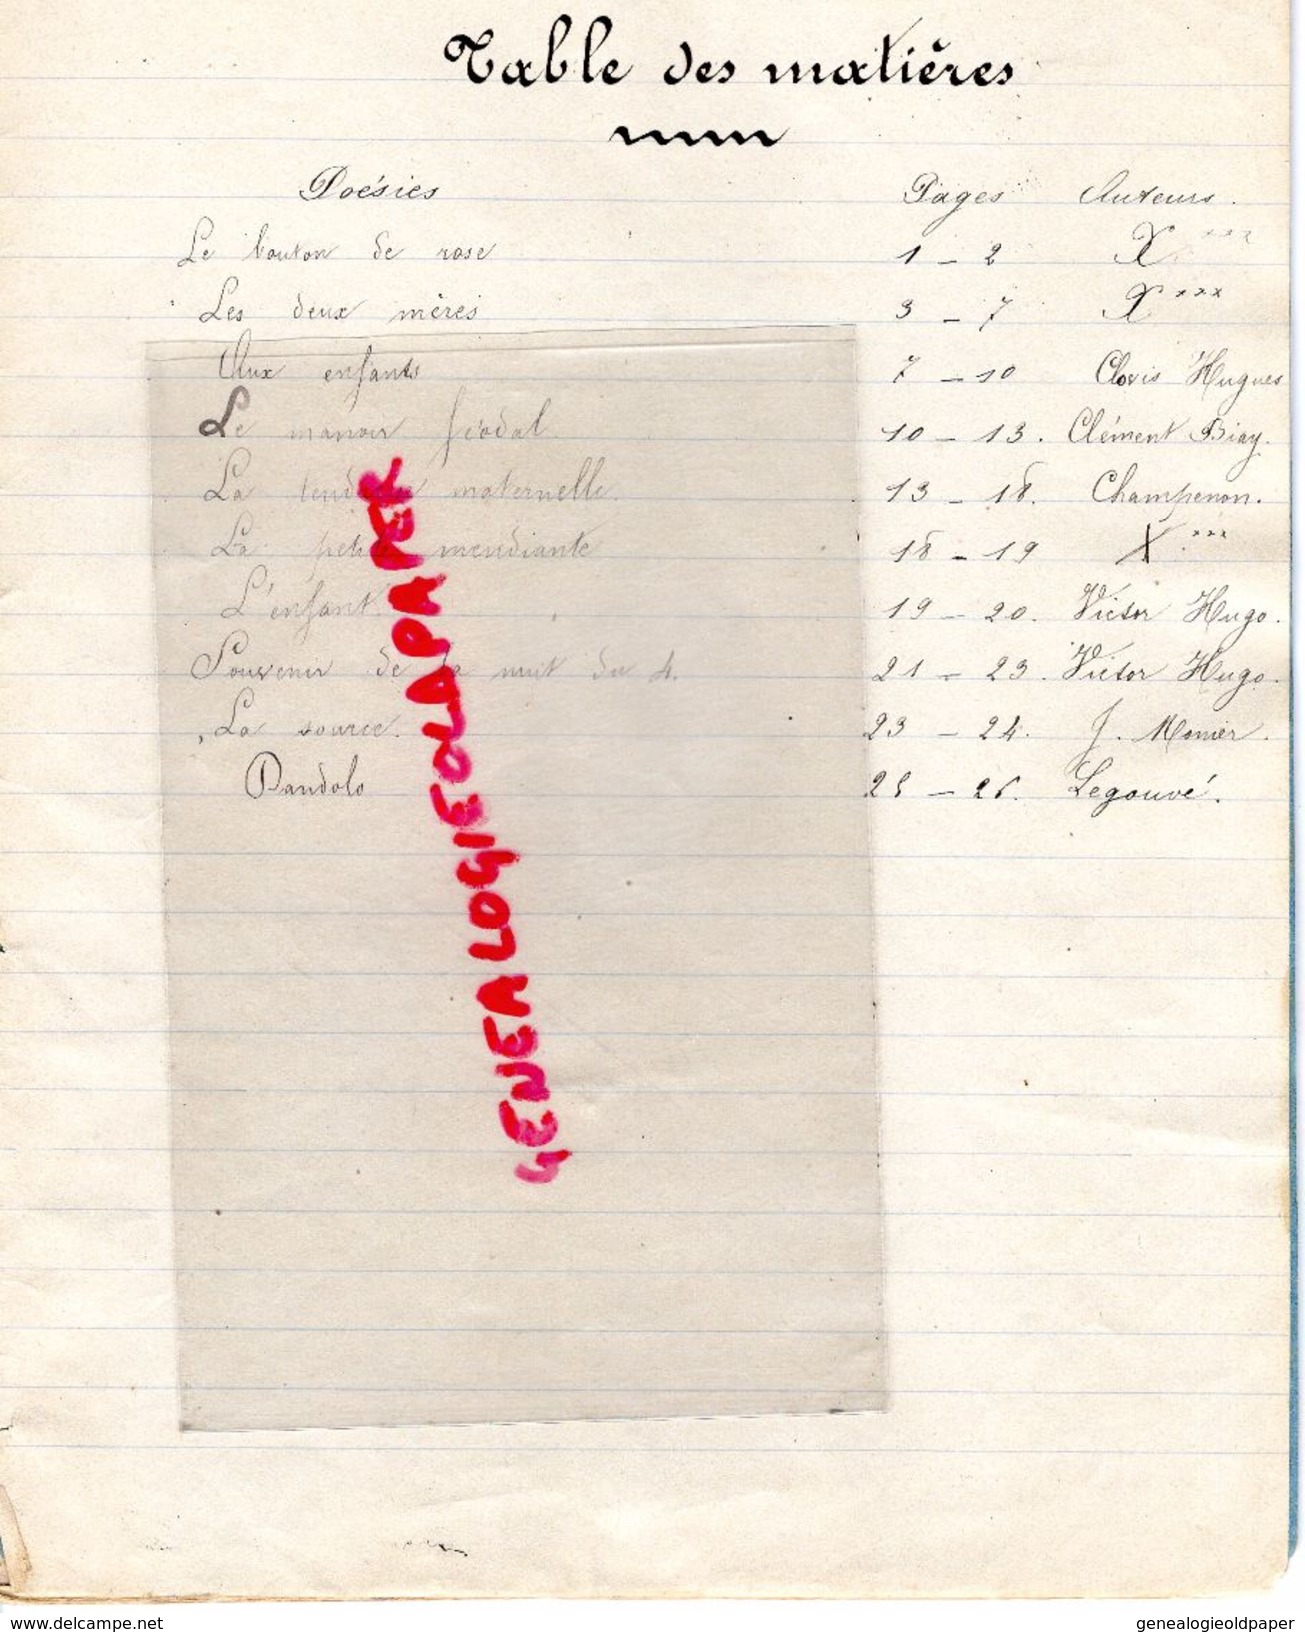 Table des matières
Poésies Pages Auteurs.
Le bouton de rose 1 - 2 X ***
Les deux mères 3 - 7 X ***
Aux enfants 7 - 10 Clovis Hugues
Le manoir féodal. 10 - 13. Clément Biay.
La tendresse maternelle. 13 - 18. Champenon.
La petite mendiante 18 - 19 X ***
L'enfant. 19 - 20. Victor Hugo.
Souvenir de la nuit du 4. 21 - 23. Victor Hugo.
La source. 23 - 24. J. Monier.
Dandolo 25 - 26. Legouvé.
GENEALOGIEOLDPAPER
www.delcampe.net genealogieoldpaper